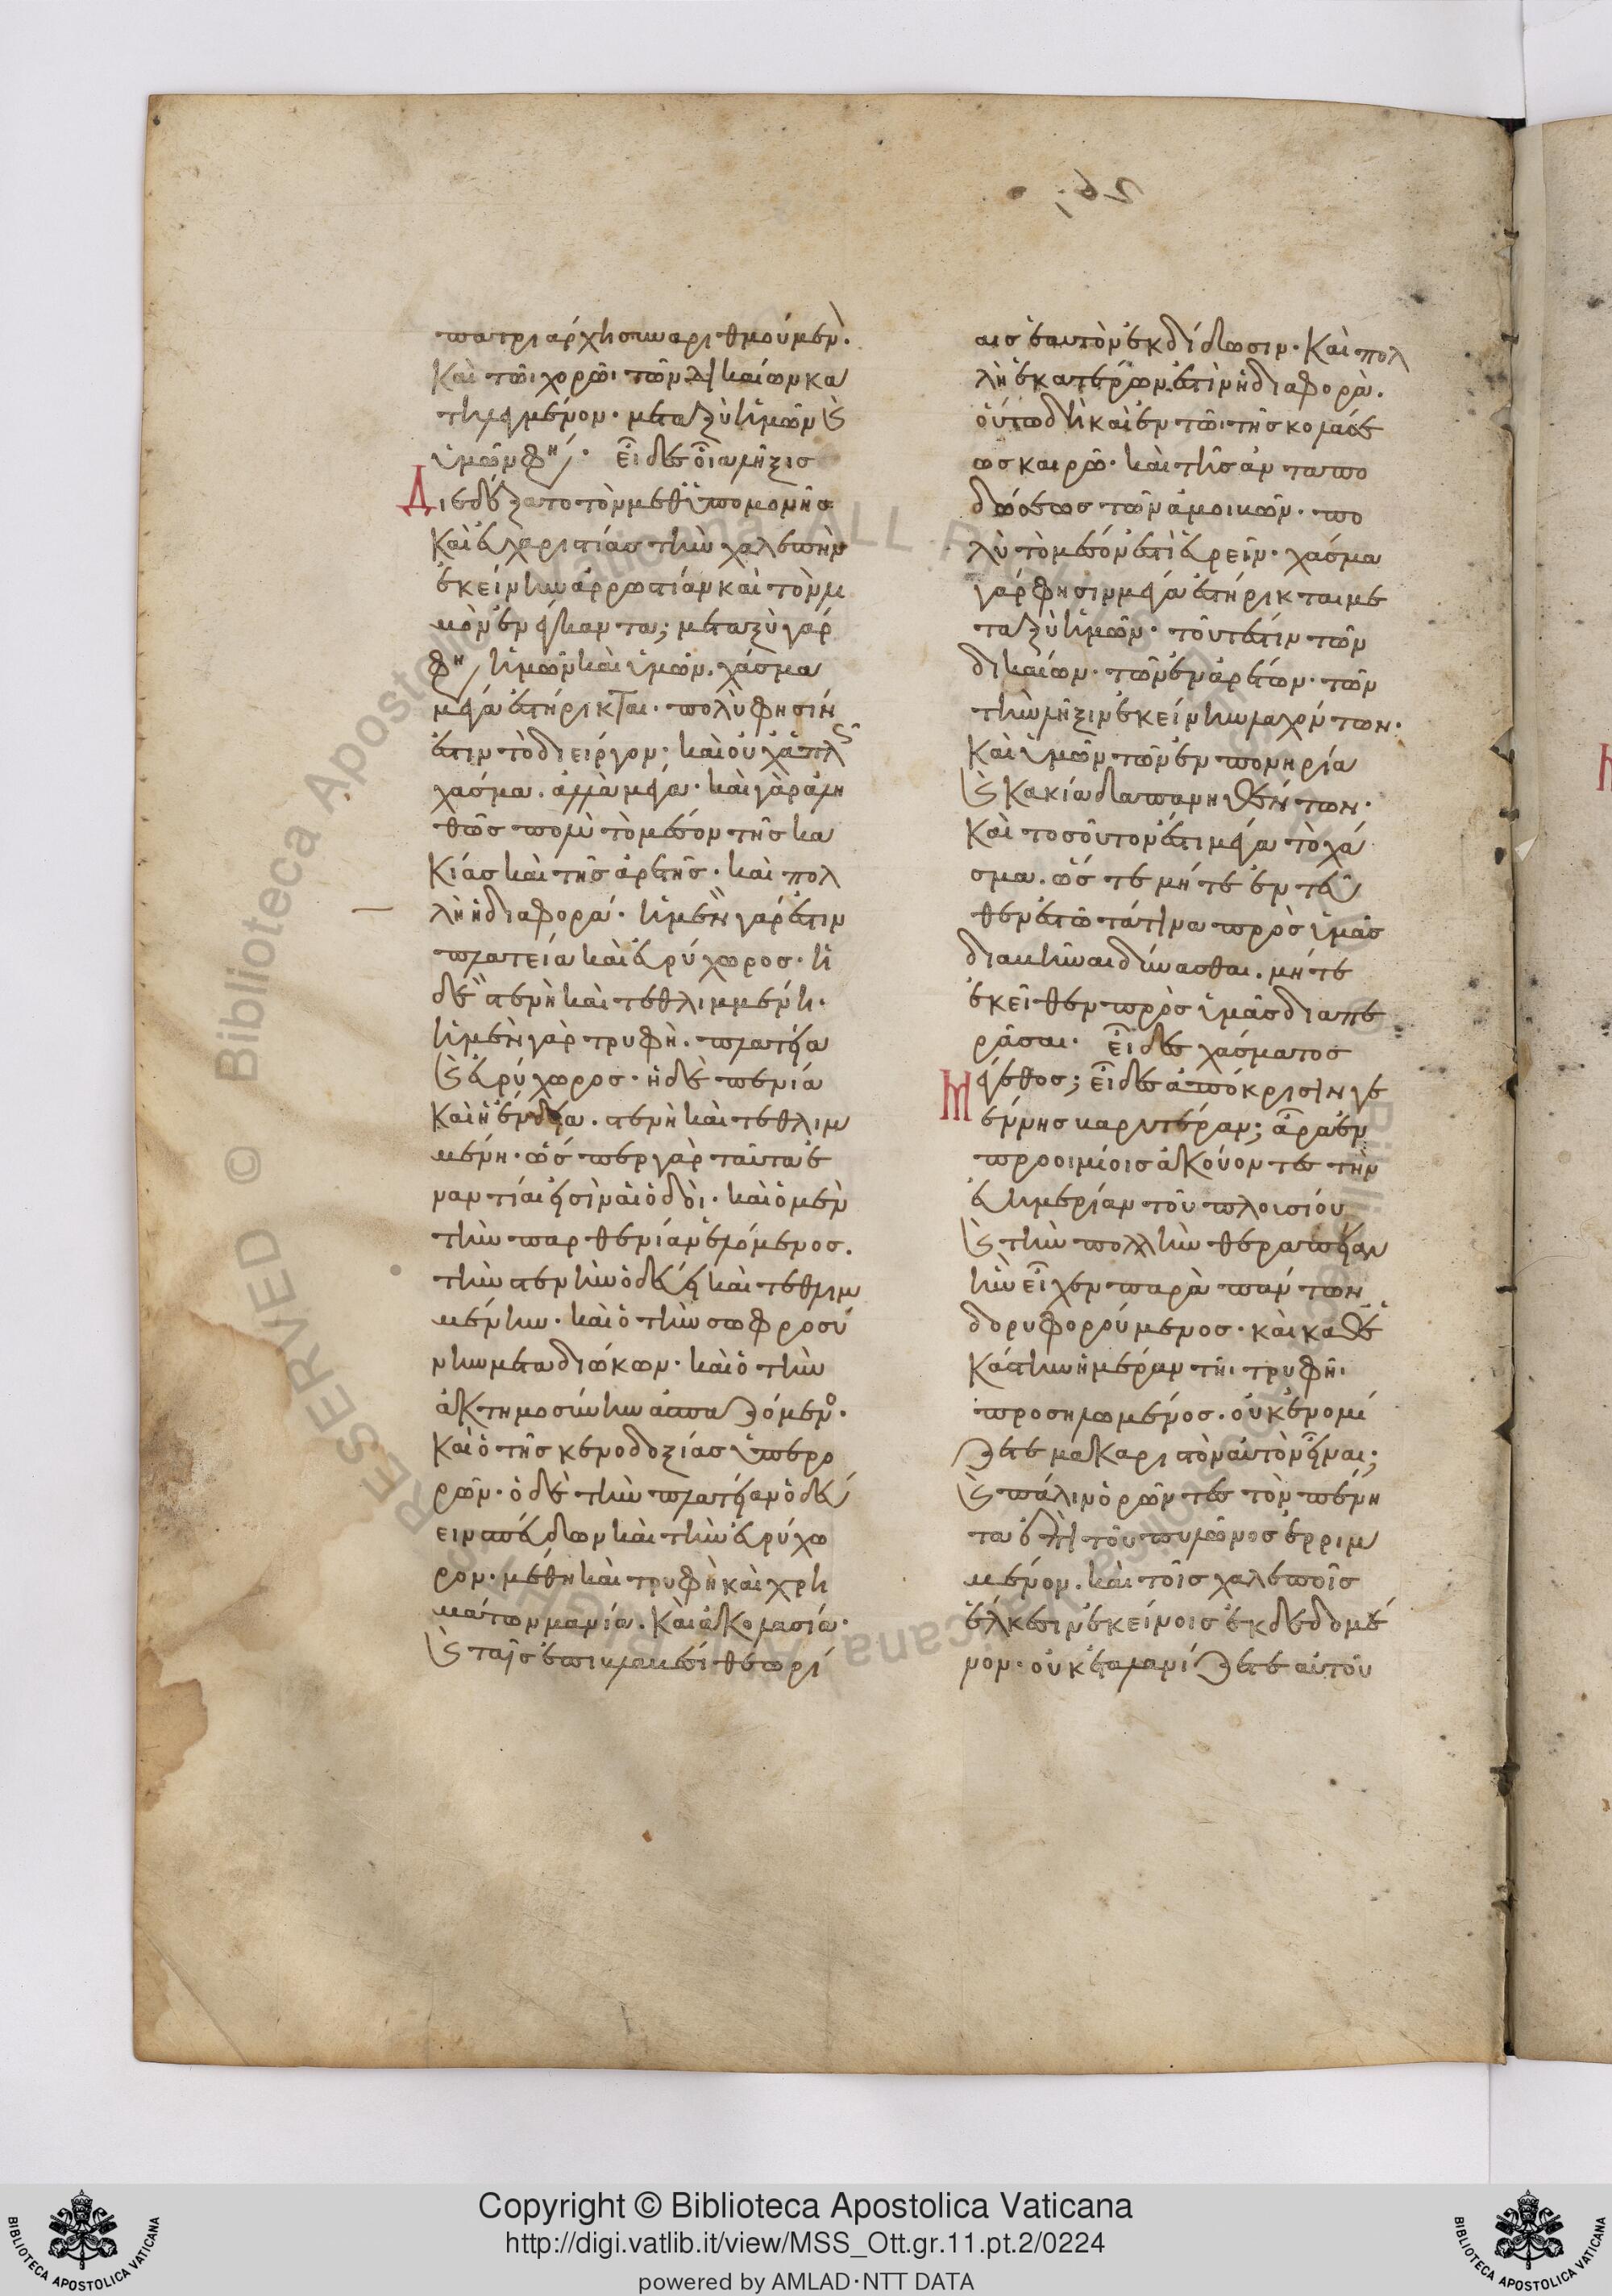 πατριάρχη συναριθμούμενον.
Καὶ τῶι χορῶι τῶν δικαίων κα
τηγμένον. μεταξὺ ἡμῶν καὶ
ὑμῶν φησί. εἶδες οἵαν ῥῆξις
Διεδέξατο τὸν μεθ' ὑπομονῆς
καὶ εὐχαριστίας τὴν χαλεπὴν
ἐκείνην ἀρρωστίαν καὶ τὸν λι
μὸν ἐνέγκαντα; μεταξὺ γάρ
φησιν ἡμῶν καὶ ὑμῶν. χάσμα
μέγα ἐστήρικται. πολύ φησίν
ἐστιν τὸ διεῖργον; καὶ οὐχ ἁπλῶς
χάσμα. ἀλλὰ μέγα. καὶ γὰρ ἀλη
θῶς πολὺ τὸ μέσον τῆς κα
κίας καὶ τῆς ἀρετῆς. καὶ πολ
λὴ ἡ διαφορά. ἡ μὲν γάρ ἐστιν
πλατεία καὶ εὐρύχωρος. ἡ
δὲ στενὴ καὶ τεθλιμμένη.
ἡ μὲν γὰρ τρυφὴ. πλατεῖα
καὶ εὐρύχωρος. ἡ δὲ πενία
καὶ ἡ ἔνδεια. στενὴ καὶ τεθλιμ
μένη. ὥσπερ γὰρ ταῦτα ἐ
ναντίαι εἰσὶν αἱ ὁδοὶ. καὶ ὁ μὲν
τὴν παρθενίαν ἑλόμενος.
τὴν στενὴν ὁδεύει καὶ τεθλιμ
μένην. καὶ ὁ τὴν σωφροσύ
νην μεταδιώκων. καὶ ὁ τὴν
ἀκτημοσύνην ἀσπαζόμενος.
καὶ ὁ τῆς κενοδοξίας ὑπερο
ρῶν. ὁ δὲ τὴν πλατεῖαν ὁδεύ
ειν σπεύδων καὶ τὴν εὐρύχω
ρον. μέθη καὶ τρυφῆ καὶ χρη
μάτων μανία. καὶ ἀκολασία.
καὶ ταῖς ἐπιβλαβέσι θεωρί
αις ἑαυτὸν ἐκδίδωσιν. Καὶ πολ
λὴ ἑκατέρων ἐστὶν ἡ διαφορὰ.
οὕτω δὴ καὶ ἐν τῶι τῆς κολάσε
ως καιρῶ. καὶ τῆς ἀνταπο
δώσεως τῶν ἀμοιβῶν. πο
λὺ τὸ μέσον ἐστὶ εὑρεῖν. χάσμα
γάρ φησιν μέγα ἐστήρικται με
ταξὺ ἡμῶν. τουτέστιν τῶν
δικαίων. τῶν ἐναρέτων. τῶν
τὴν λῆξιν ἐκείνην λαχόντων.
Καὶ ὑμῶν τῶν ἐν πονηρία
καὶ κακία δαπανηθέντων.
Καὶ τοσοῦτον ἐστι μέγα τὸ χά
σμα. ὥστε μήτε ἐντεῦ
θεν ἐστῶτά τινα πρὸς ὑμᾶς
διαβῆναι δύνασθαι. μήτε
ἐκεῖθεν πρὸς ἡμᾶς διαπε
ρᾶσαι. εἶδες χάσματος
Μέγεθος; εἶδες ἀπόκρισιν γε
έννης βαρυτέραν; ἆρα ἐν
προοιμίοις ἀκούοντες τὴν
εὐημερίαν τοῦ πλουσίου
καὶ τὴν πολλὴν θεραπείαν
ἣν εἶχεν παρὰ πάντων
δορυφορούμενος. καὶ καθ' ἑ
κάστην ἡμέραν τῆι τρυφῆι
προσηλωμένος. οὐκ ἐνομί
ζετε μακαριστὸν αὐτὸν εἶναι;
καὶ πάλιν ὁρῶντες τὸν πένη
τα ἐπὶ τοῦ πυλῶνος ἐρριμ
μένον. καὶ τοῖς χαλεποῖς
ἕλκεσιν ἐκείνοις ἐκδεδομέ
νον. οὐκ ἐταλανίζετε αὐτοῦ
Copyright © Biblioteca Apostolica Vaticana
http://digi.vatlib.it/view/MSS_Ott.gr.11.pt.2/0224
powered by AMLAD·NTT DATA